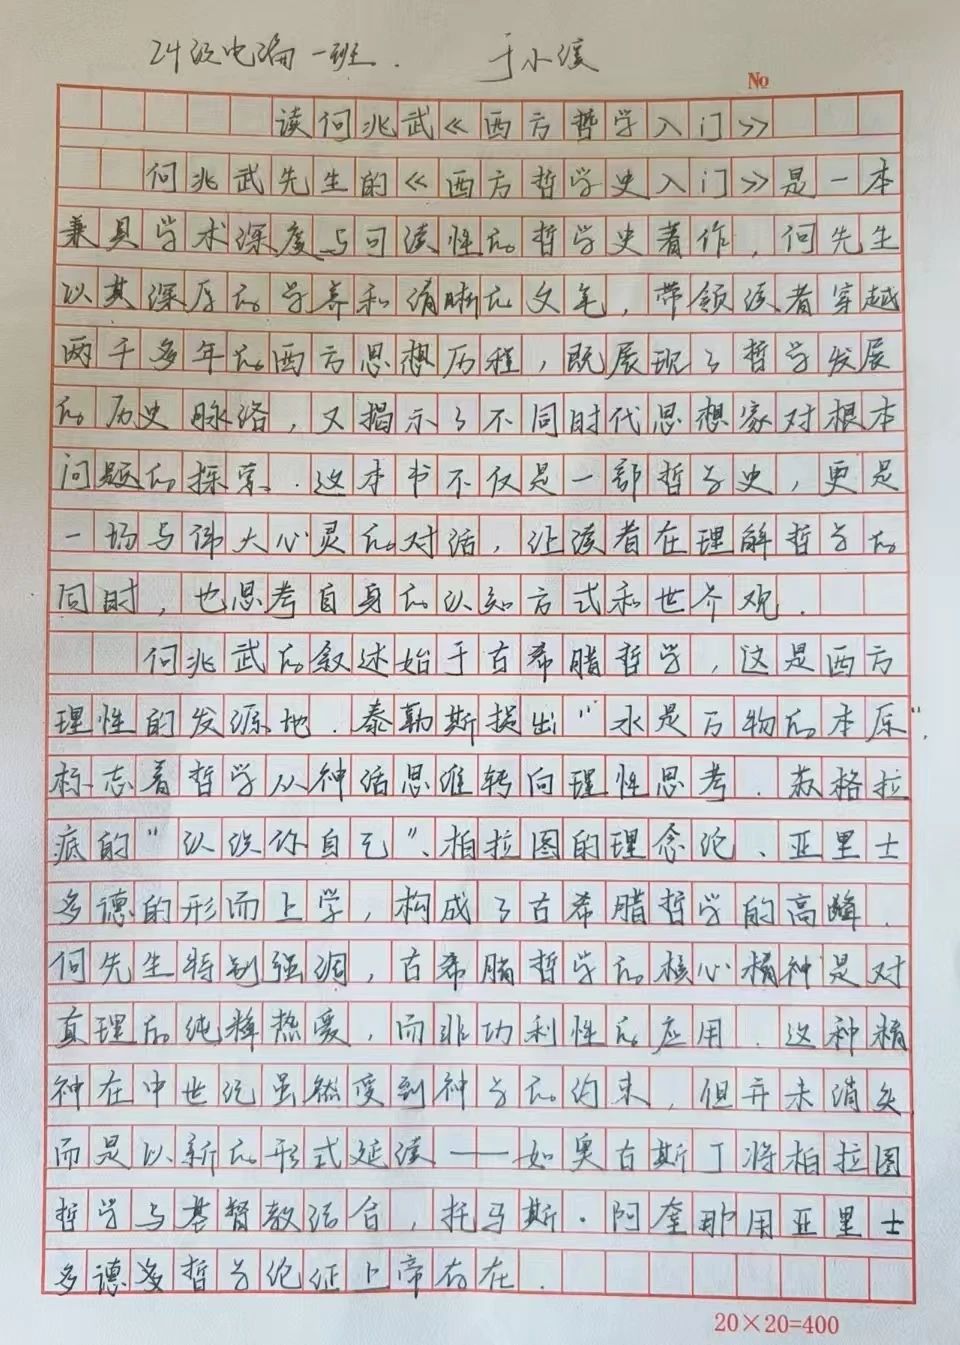 24级电编一班. 于小溪
№
读何兆武《西方哲学入门》
何兆武先生的《西方哲学史入门》是一本
兼具学术深度与可读性的哲学史著作,何先生
以其深厚的学养和清晰的文笔,带领读者穿越
两千多年的西方思想历程,既展现了哲学发展
的历史脉络,又揭示了不同时代思想家对根本
问题的探索.这本书不仅是一部哲学史,更是
一场与伟大心灵的对话,让读者在理解哲学的
同时,也思考自身的认知方式和世界观.
何兆武的叙述始于古希腊哲学,这是西方
理性的发源地.泰勒斯提出"水是万物的本原",
标志着哲学从神话思维转向理性思考.苏格拉
底的"认识你自己"、柏拉图的理念论、亚里士
多德的形而上学,构成了古希腊哲学的高峰.
何先生特别强调,古希腊哲学的核心精神是对
真理的纯粹热爱,而非功利性的应用.这种精
神在中世纪虽然受到神学的约束,但并未消失
而是以新的形式延续——如奥古斯丁将柏拉图
哲学与基督教结合,托马斯·阿奎那用亚里士
多德哲学论证上帝存在.
20×20=400